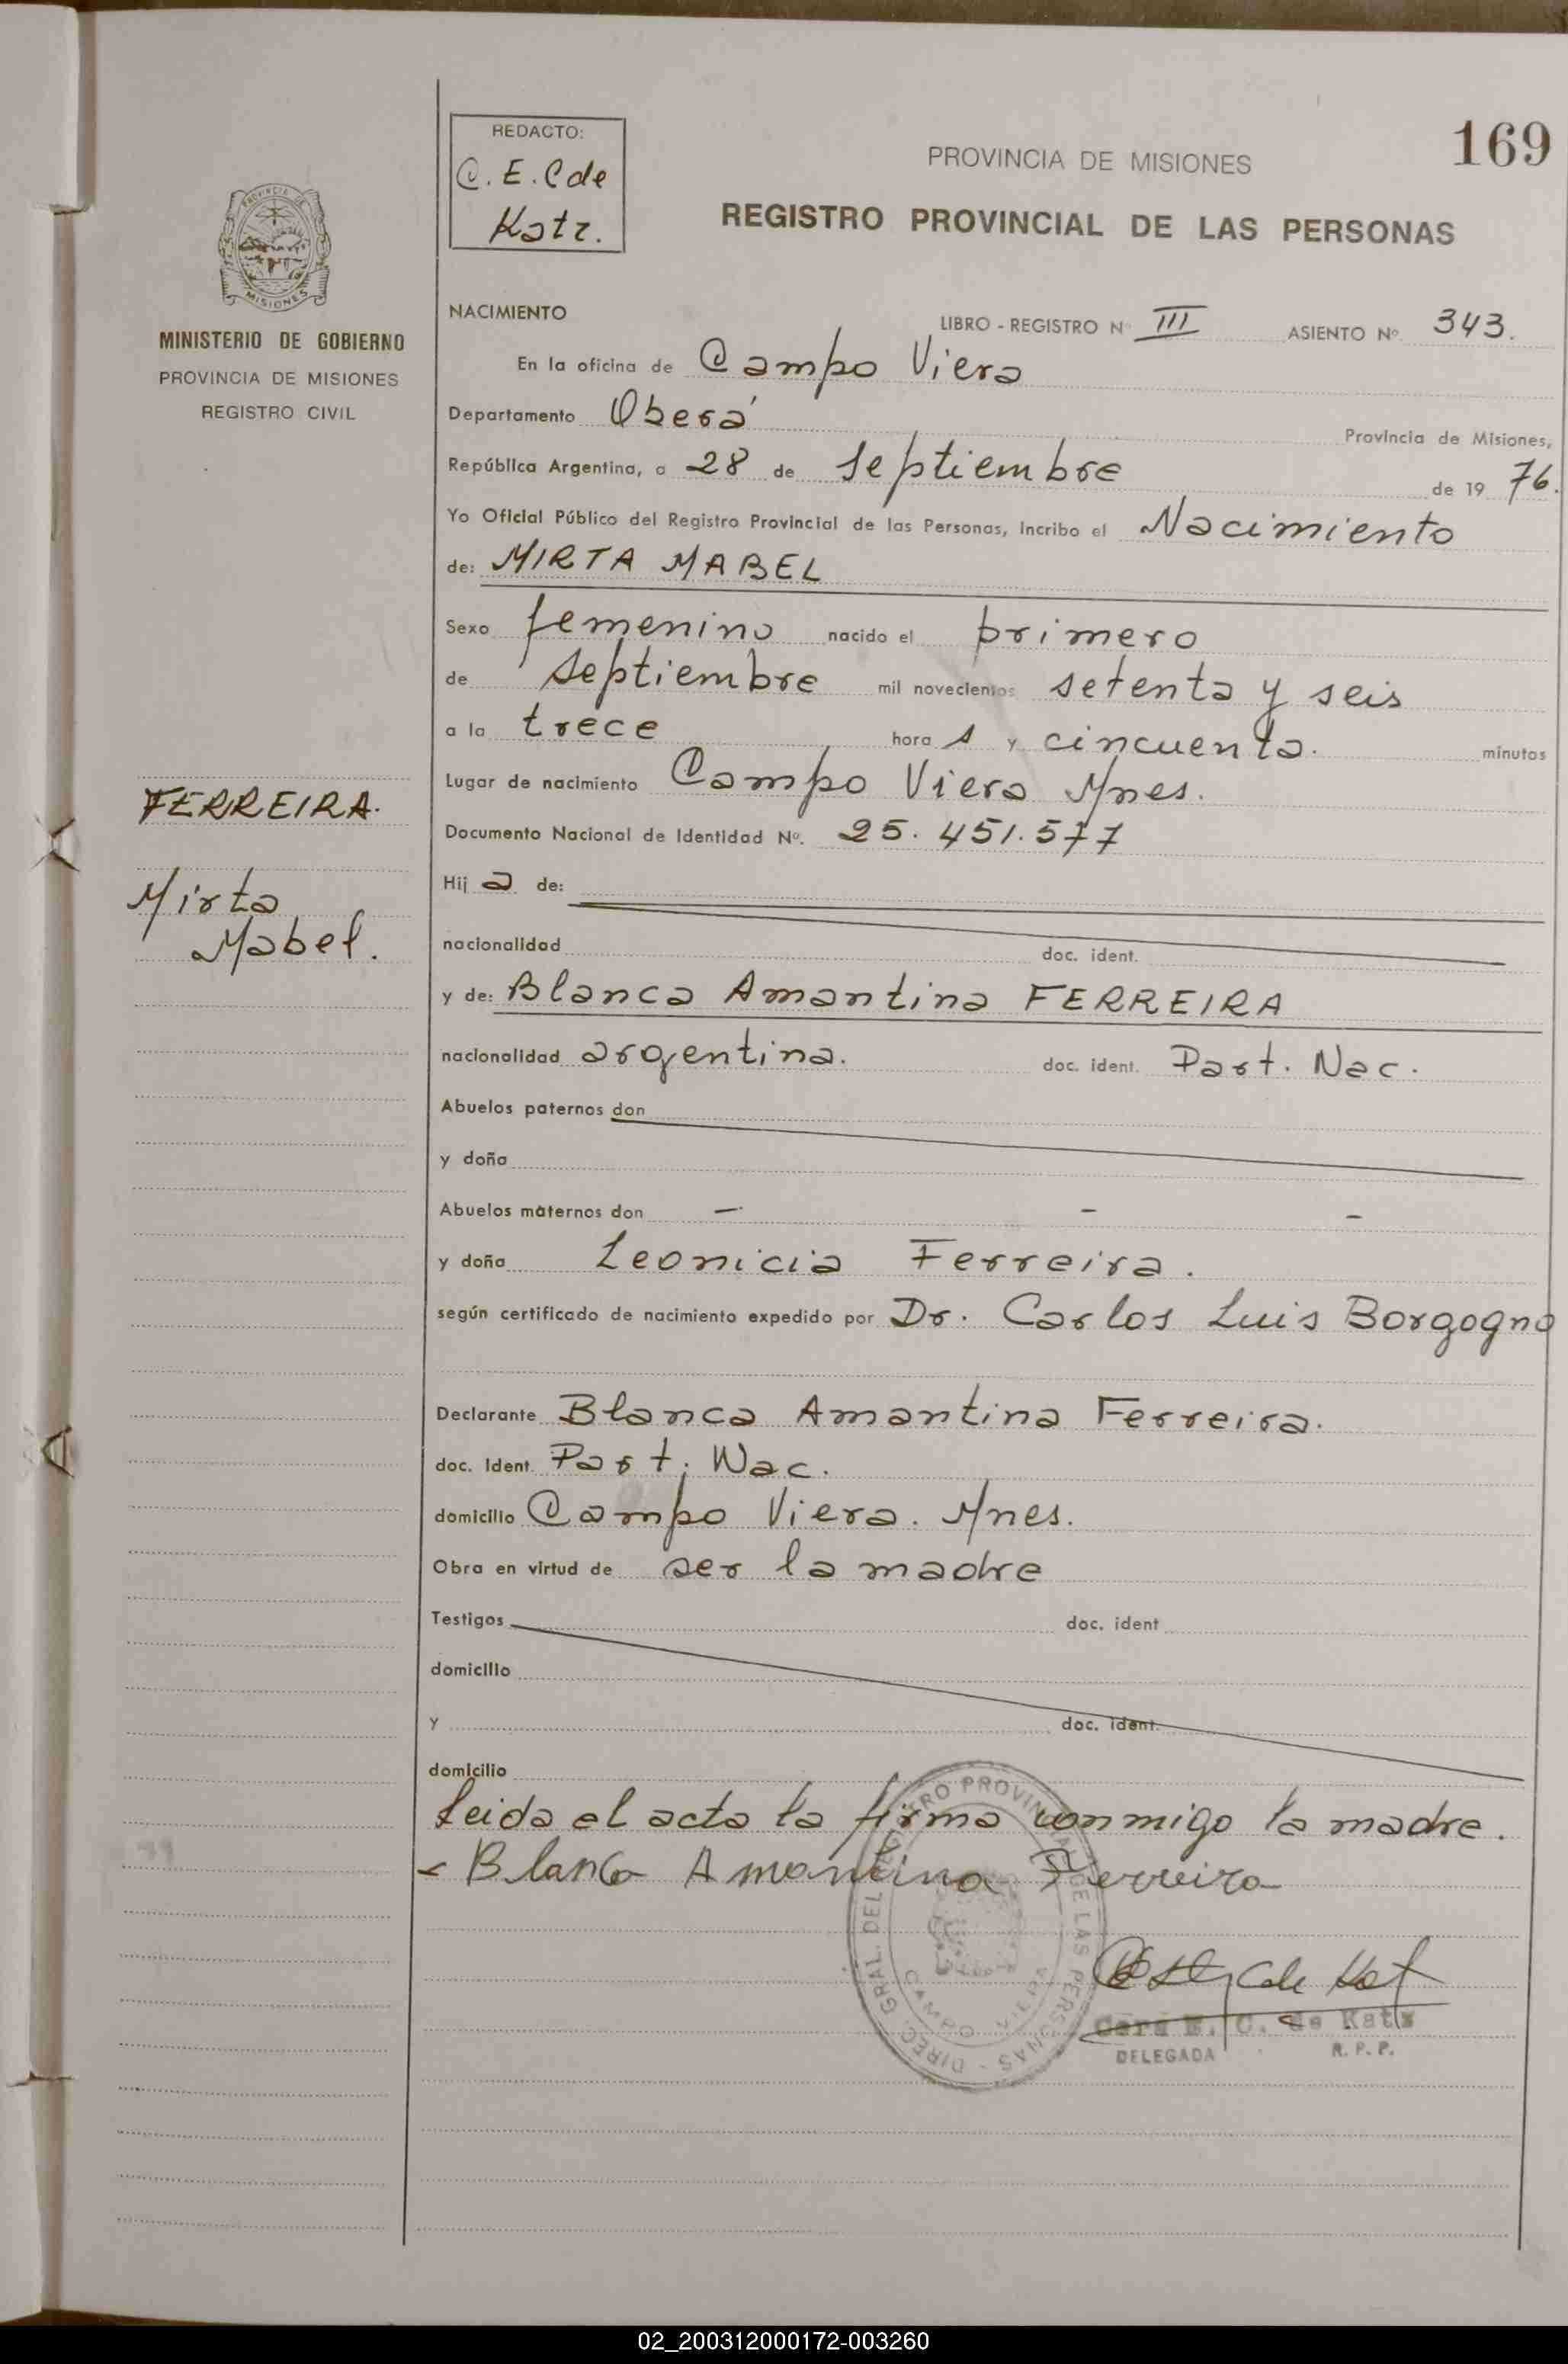 169
REDACTO:
C. E. C de
Katz.
PROVINCIA DE MISIONES
REGISTRO PROVINCIAL DE LAS PERSONAS
PROVINCIA DE
MISIONES
MINISTERIO DE GOBIERNO
PROVINCIA DE MISIONES
REGISTRO CIVIL
FERREIRA.
Mirta
Mabel.
NACIMIENTO
LIBRO - REGISTRO Nº III ASIENTO Nº 343.
En la oficina de Campo Viera
Departamento Oberá Provincia de Misiones,
República Argentina, a 28 de Septiembre de 19 76.
Yo Oficial Público del Registro Provincial de las Personas, incribo el Nacimiento
de: MIRTA MABEL
Sexo femenino nacido el primero
de septiembre mil novecientos setenta y seis
a la trece hora s y cincuenta. minutos
Lugar de nacimiento Campo Viera Mnes.
Documento Nacional de Identidad Nº. 25.451.577
Hij a de:
nacionalidad doc. ident.
y de: Blanca Amantina FERREIRA
nacionalidad argentina. doc. ident. Part. Nac.
Abuelos paternos don
y doña
Abuelos maternos don — — —
y doña Leonicia Ferreira.
según certificado de nacimiento expedido por Dr. Carlos Luis Borgogno
Declarante Blanca Amantina Ferreira.
doc. Ident. Part. Nac.
domicilio Campo Viera. Mnes.
Obra en virtud de ser la madre
Testigos doc. ident
domicilio
y doc. ident.
domicilio
Leida el acta la firma conmigo la madre.
Blanca Amantina Ferreira
DIREC. GRAL. DEL REGISTRO PROVINCIAL DE LAS PERSONAS
CAMPO VIERA
C. de Katz
DELEGADA R. P. P.
02_200312000172-003260